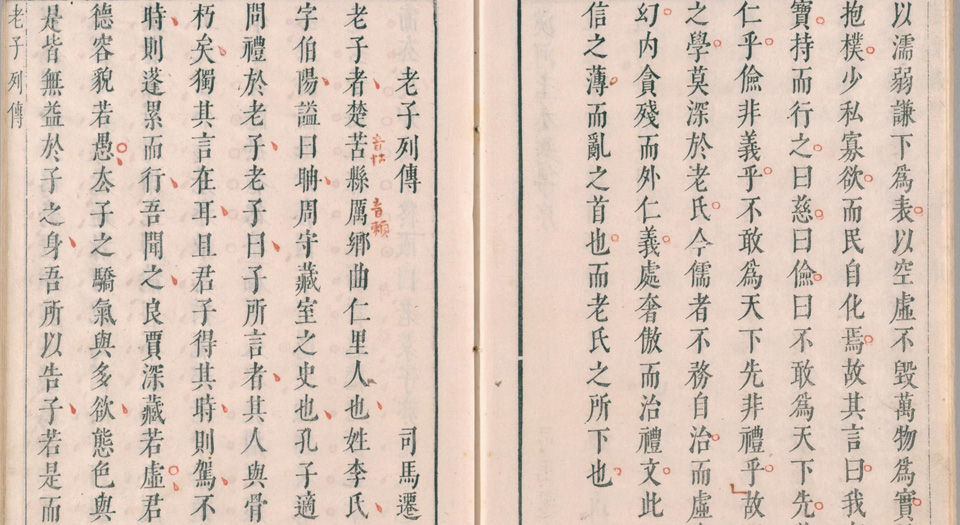 以濡弱謙下爲表以空虛不毀萬物爲實
抱樸少私寡欲而民自化焉故其言曰我
寶持而行之曰慈曰儉曰不敢爲天下先
仁乎儉非義乎不敢爲天下先非禮乎故
之學莫深於老氏今儒者不務自治而虛
幻内貪殘而外仁義處奢傲而治禮文此
信之薄而亂之首也而老氏之所下也
老子列傳 司馬遷
音頼
老子者楚苦縣厲鄉曲仁里人也姓李氏
字伯陽謚曰聃周守藏室之史也孔子適
問禮於老子老子曰子所言者其人與骨
朽矣獨其言在耳且君子得其時則駕不
時則蓬累而行吾聞之良賈深藏若虛君
德容貌若愚厺子之驕氣與多欲態色與
是皆無益於子之身吾所以告子若是而
老子列傳